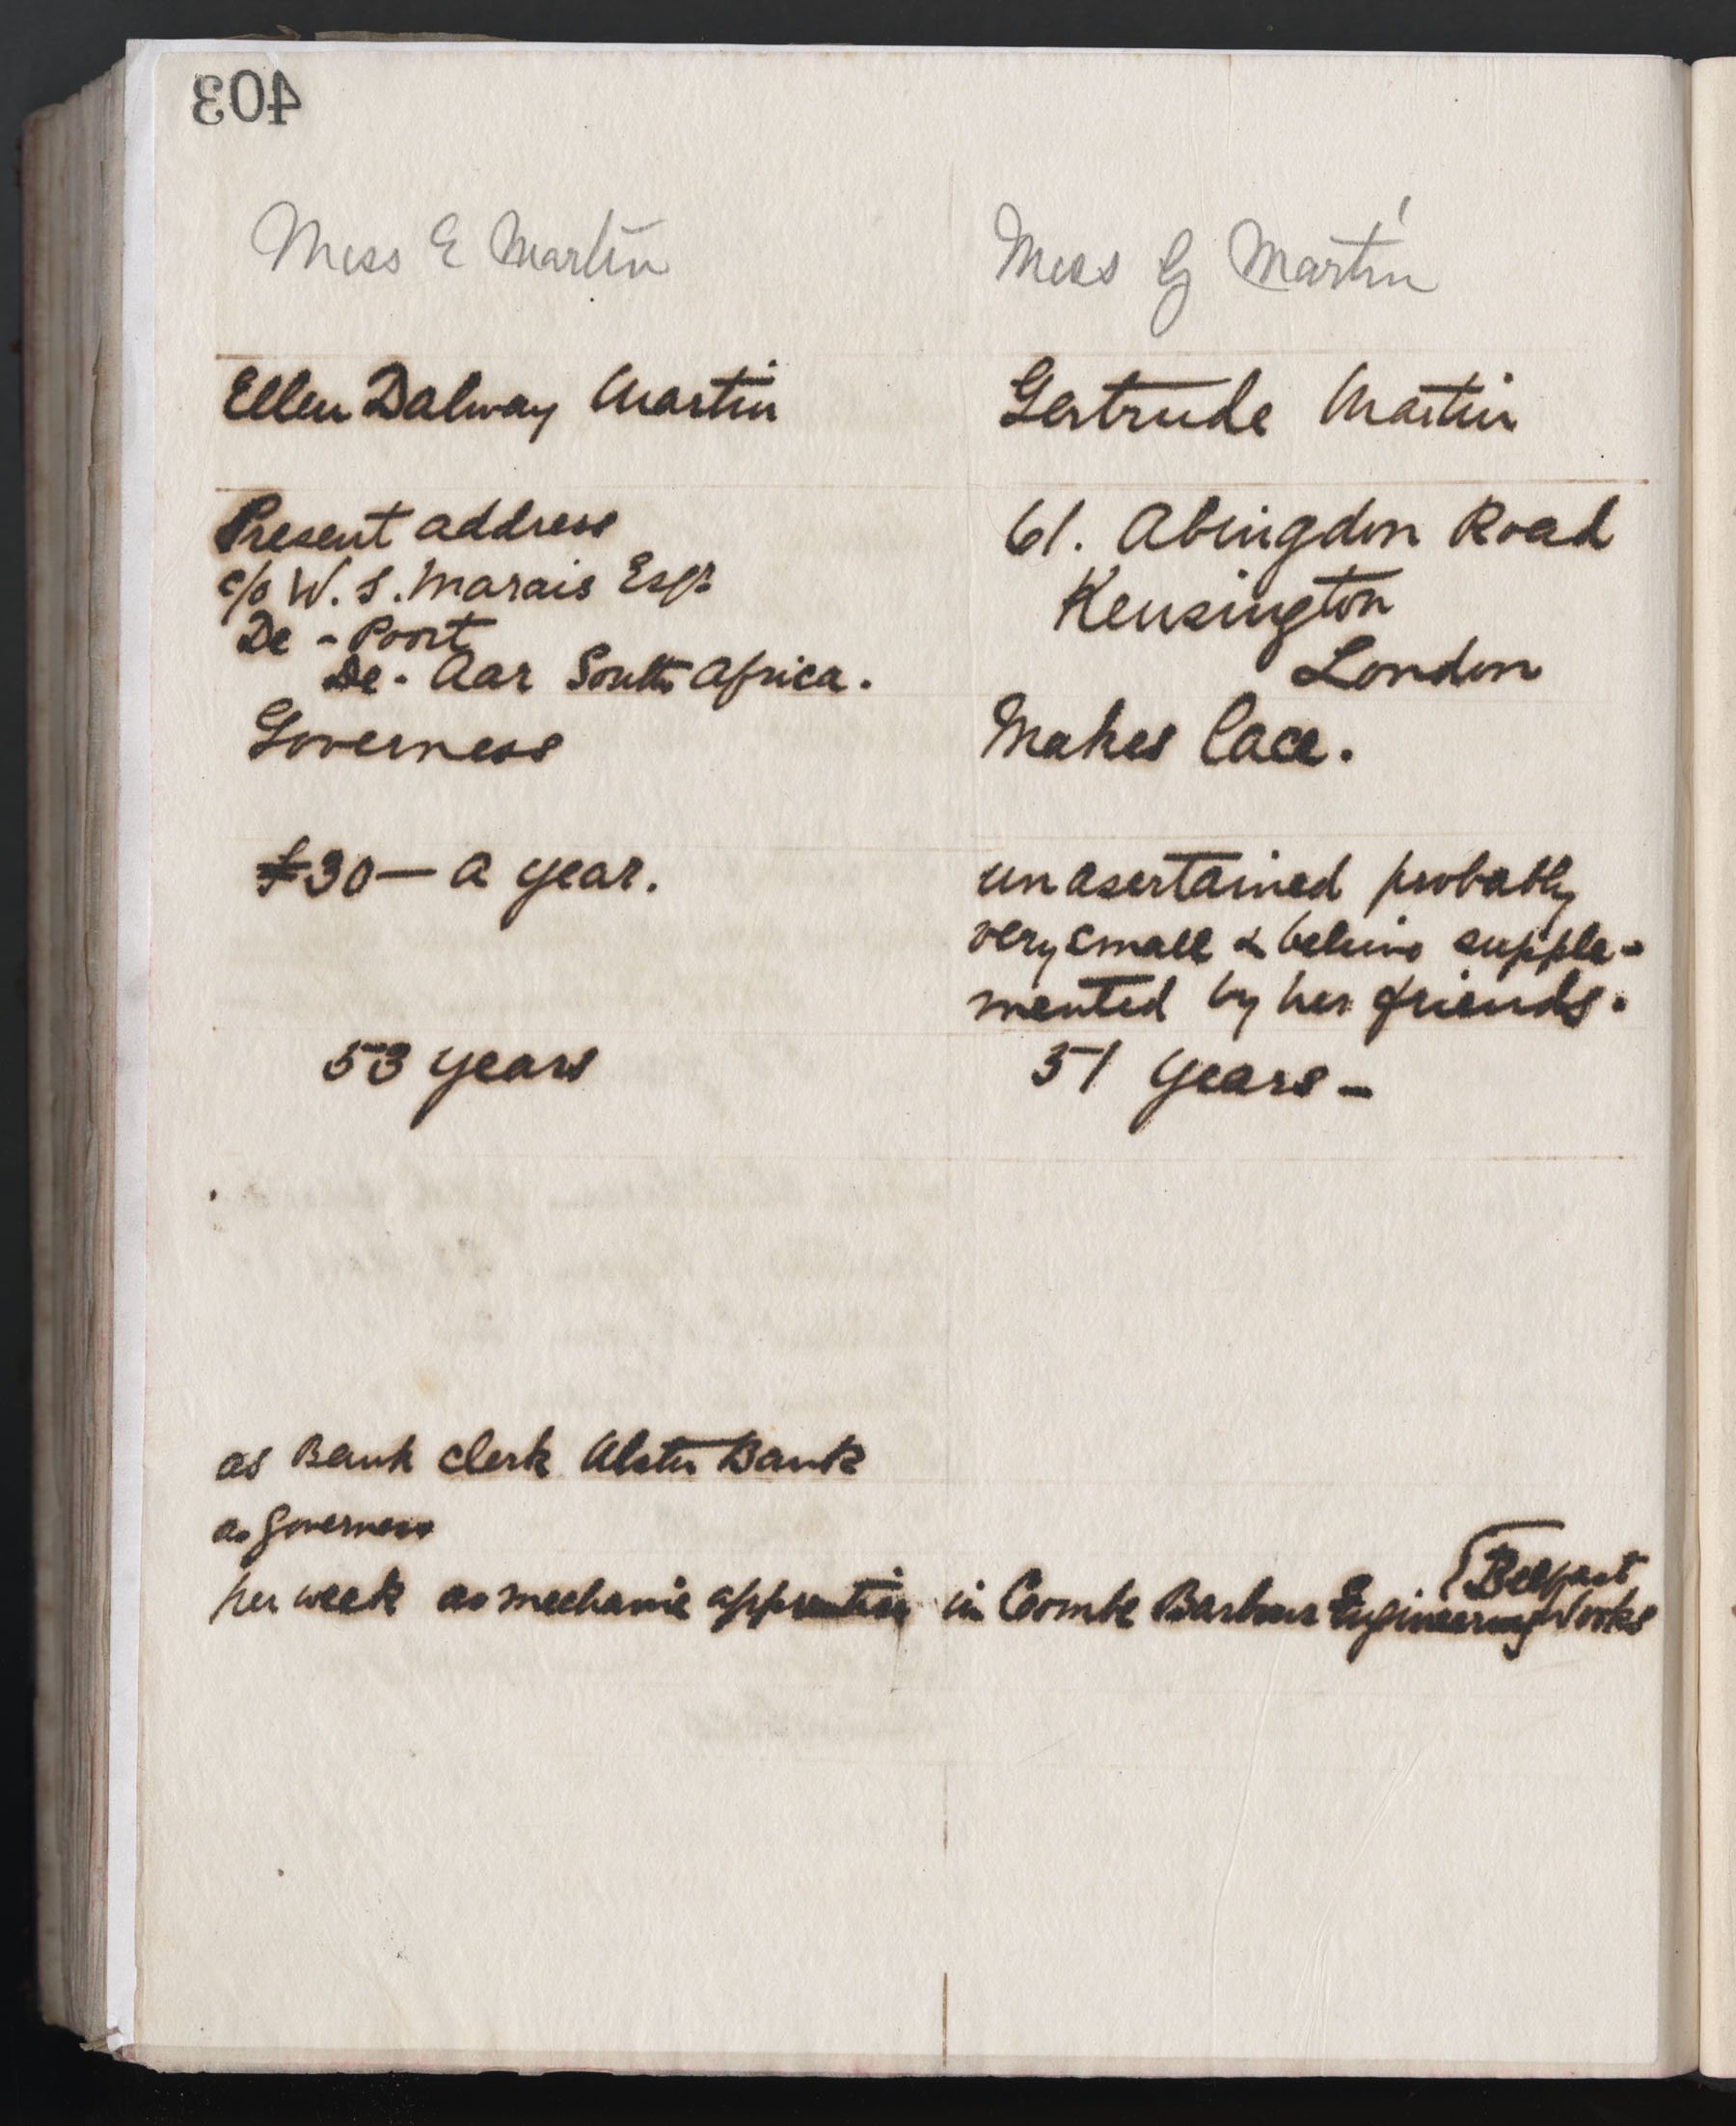 403
Miss E Martin
Miss G Martin
Ellen Dalway Martin
Gertrude Martin
Present address
c/o W. S. Marais Esqr
De - Poort
De - Aar South Africa.
61. Abingdon Road
Kensington
London
Governess
Makes lace.
£30 — a year.
unasertained probably
very small & believe supple-
mented by her friends.
53 years
51 years -
as Bank clerk Ulster Bank
as governess
per week as mechanic apprentice in Coombe Barbour Engineering Works
Belfast